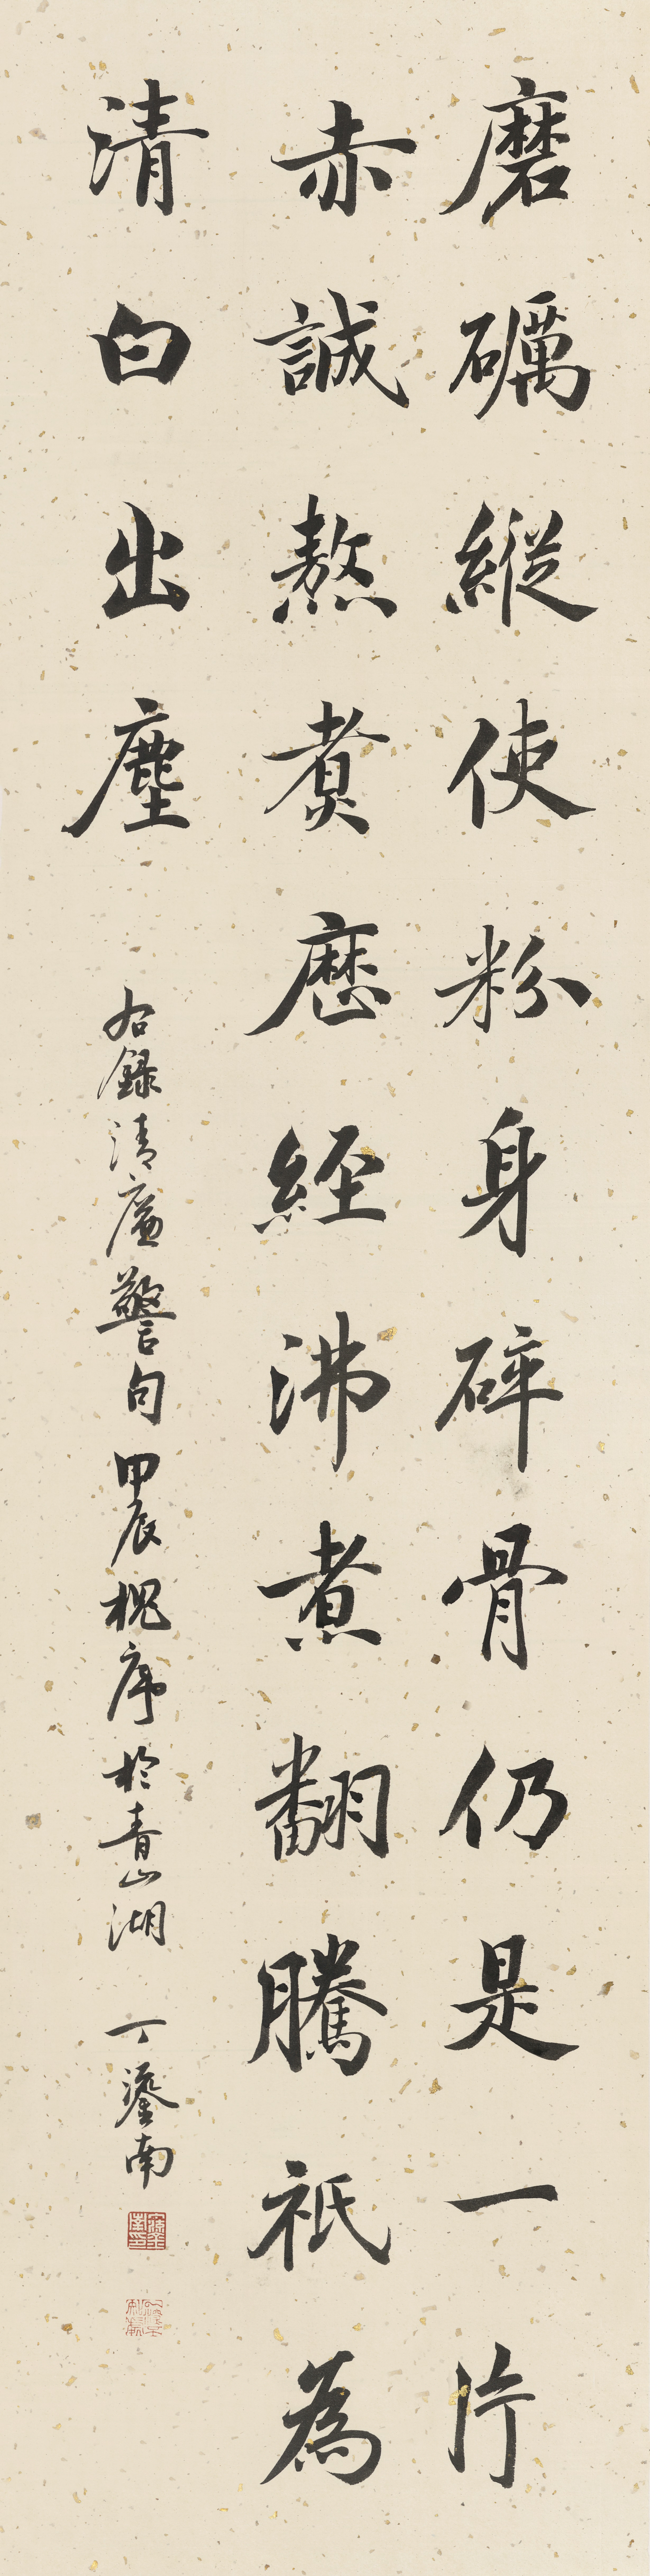 磨礪縱使粉身碎骨仍是一片
赤誠熬煑歷經沸煮翻騰祇為
清白出塵
右錄清廉警句甲辰槐序於青山湖 丁鎏南